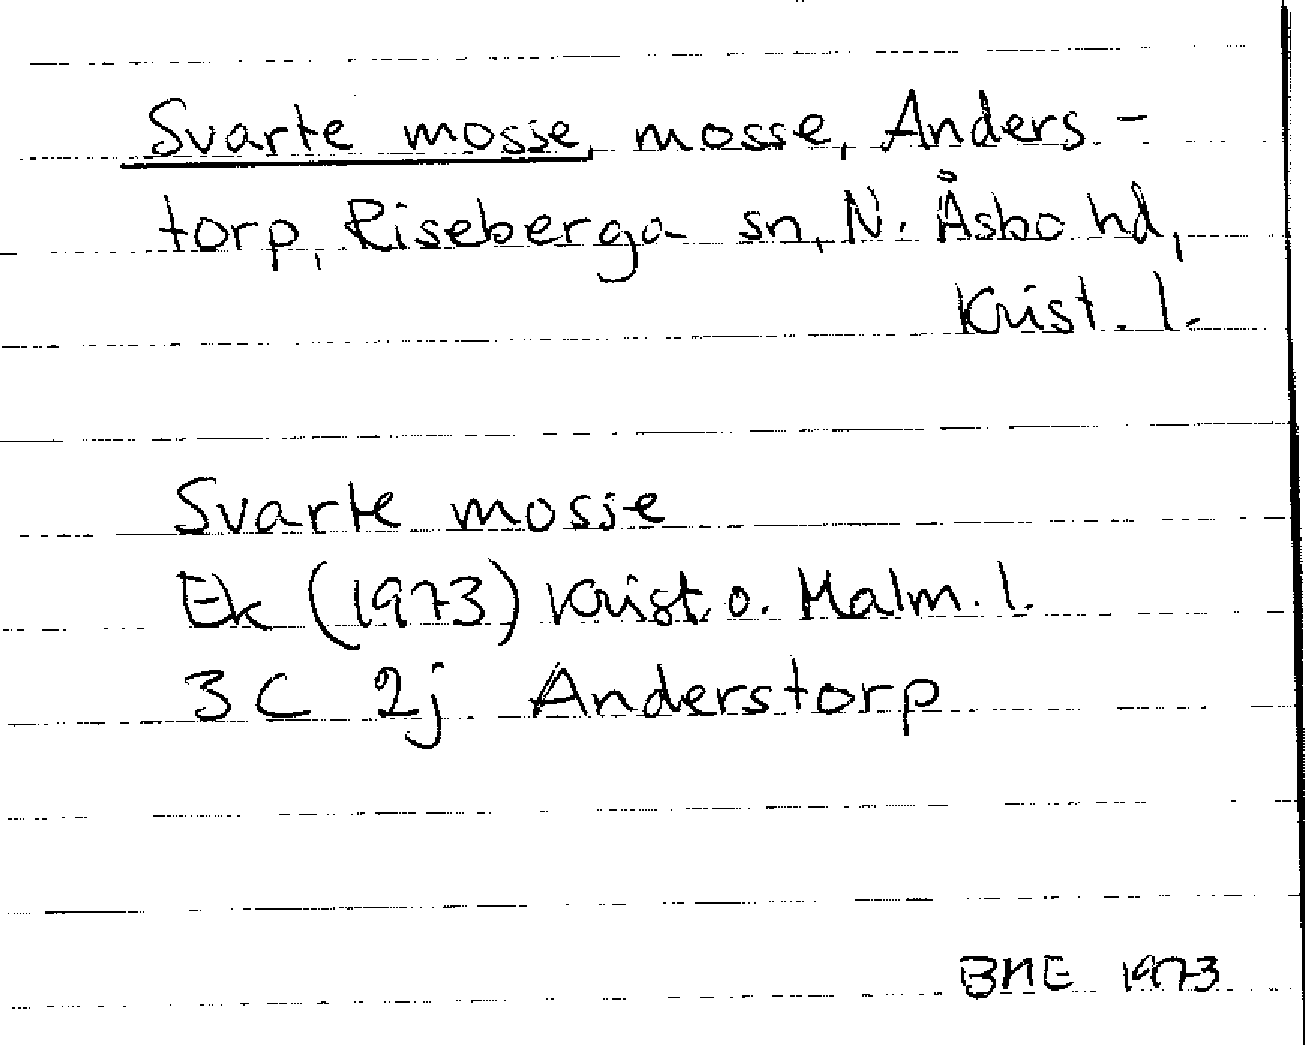 Svarte mosse, mosse, Anders-
torp, Riseberga sn, N. Åsbo hd,
Krist. l.
Svarte mosse
Ek (1973) Krist. o. Malm. l.
3C 2j Anderstorp
BME 1973